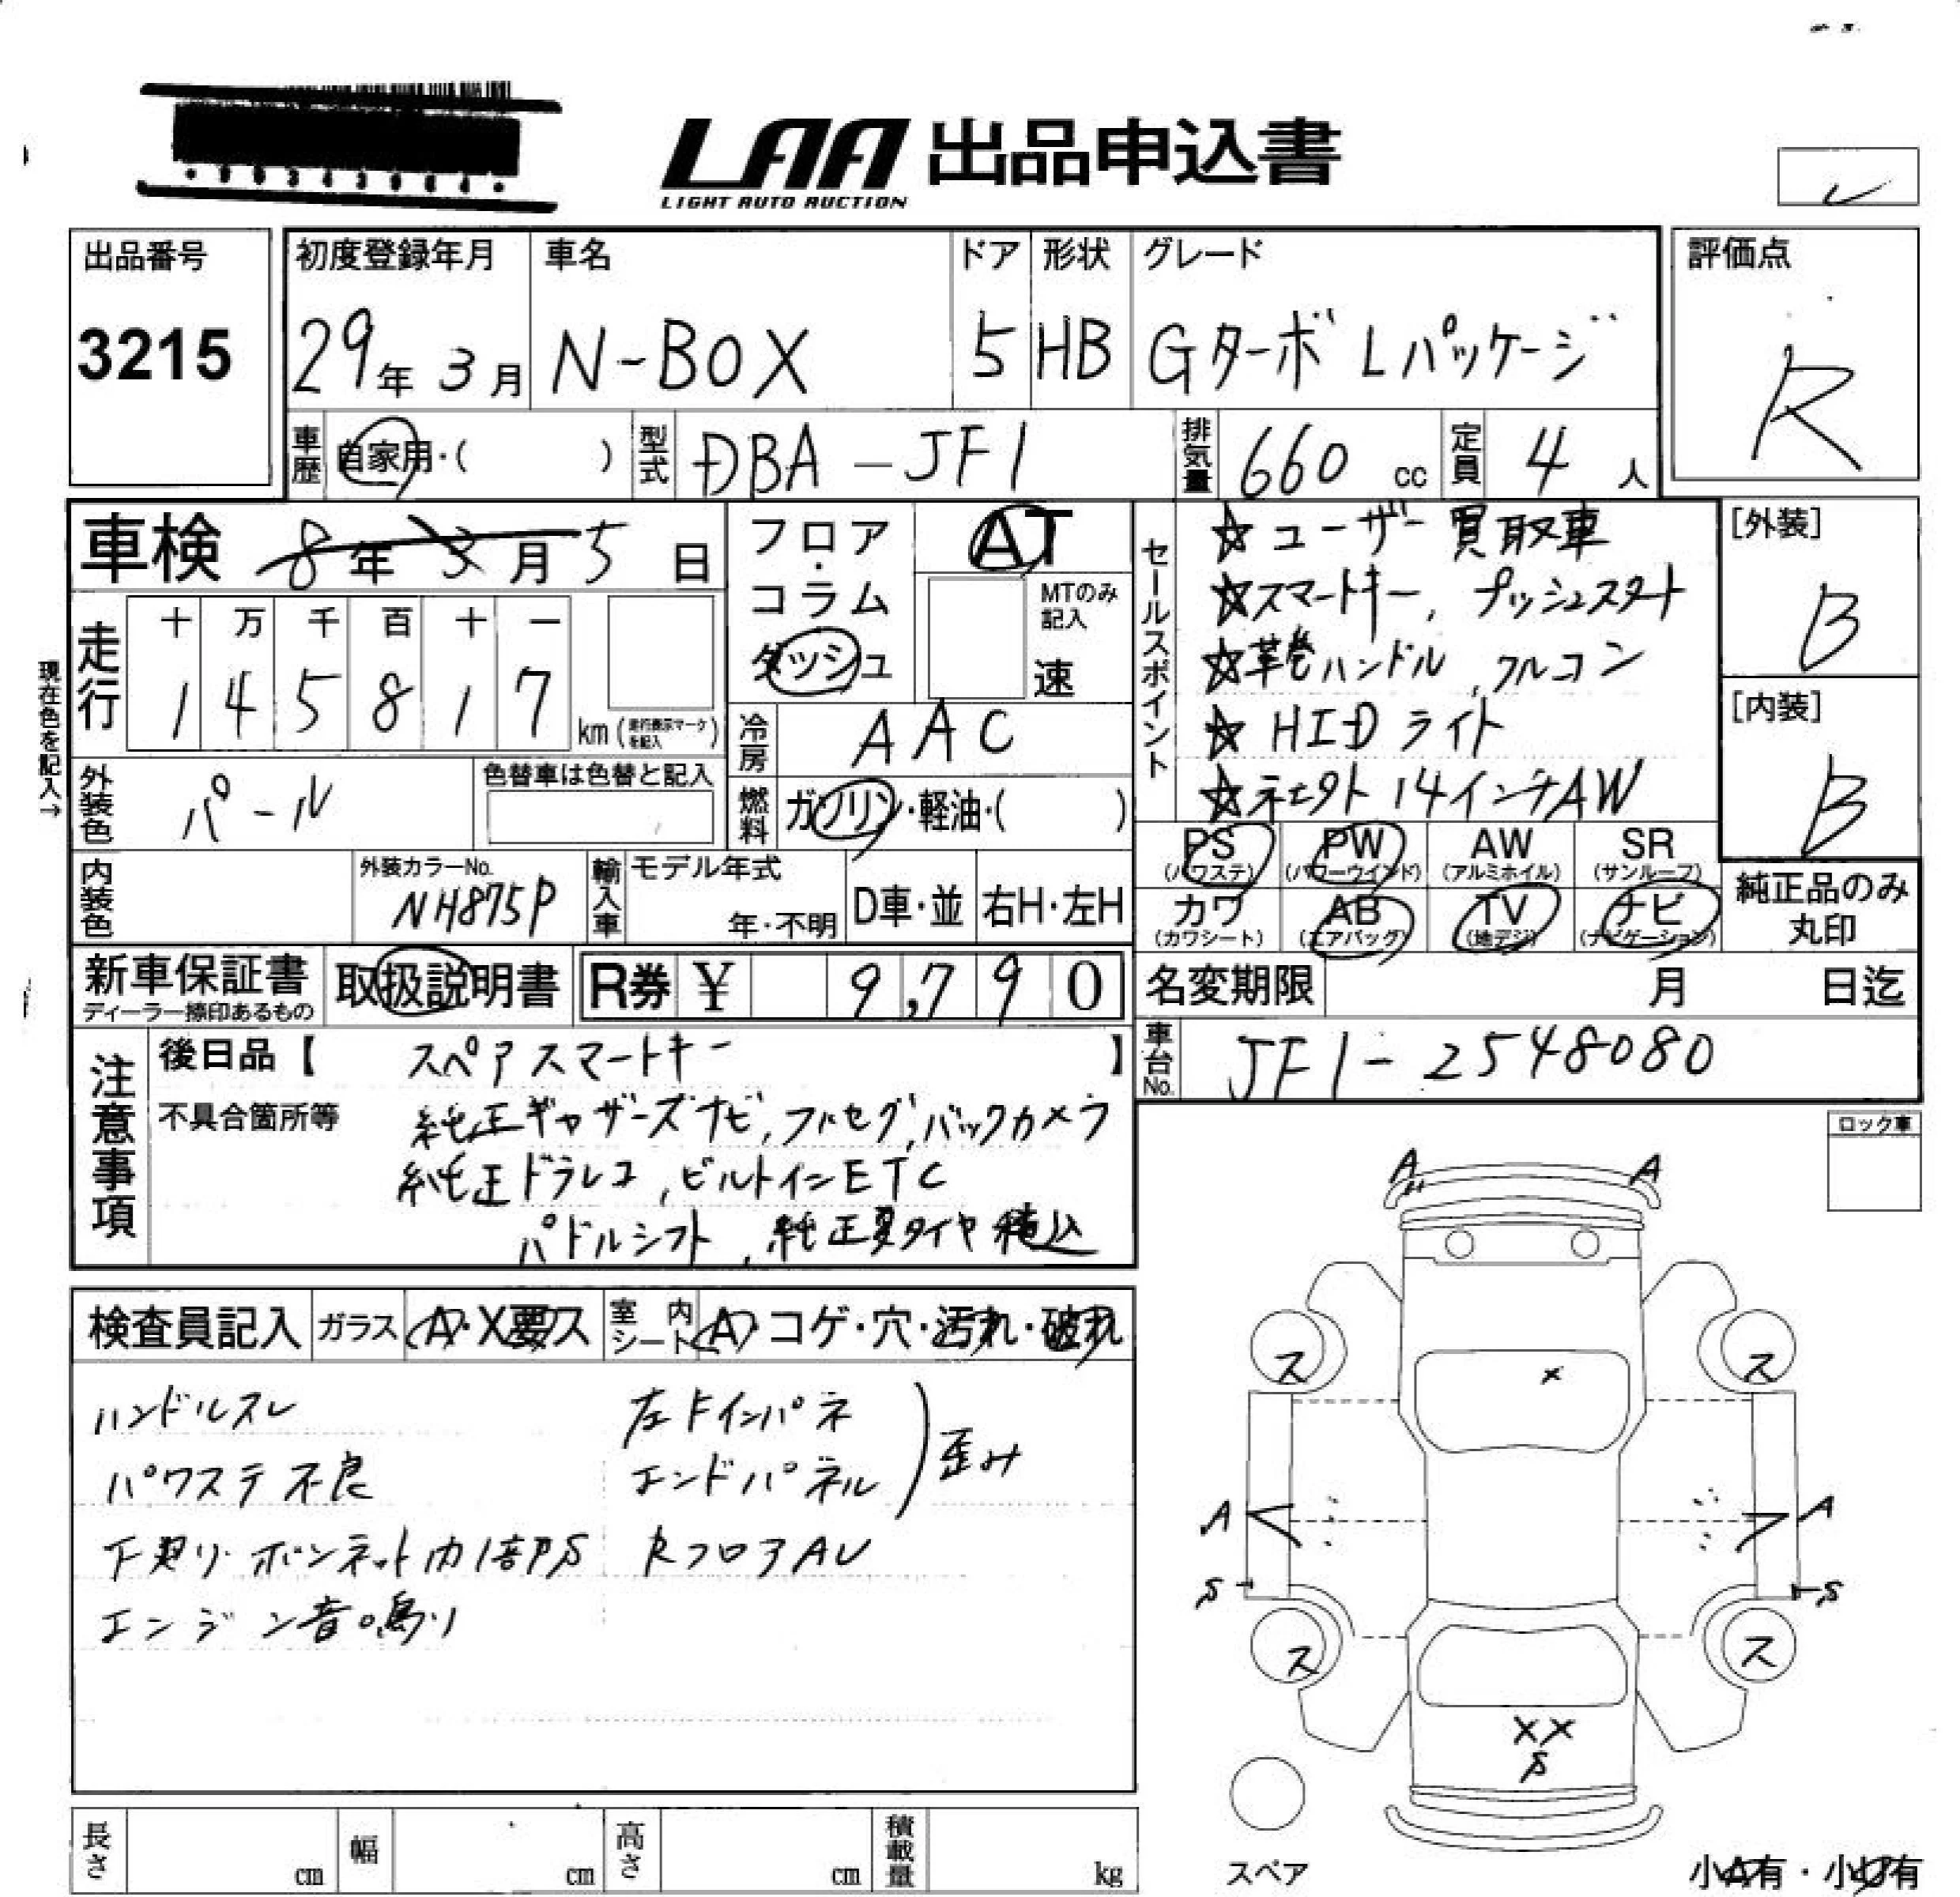 LAA 出品申込書
LIGHT AUTO AUCTION
出品番号
3215
初度登録年月
29年 3月
車名
N-BOX
ドア
5
形状
HB
グレード
Gターボ Lパッケージ
評価点
R
車歴
自家用・( )
型式
DBA-JF1
排気量
660 cc
定員
4 人
車検 8年 3月 5日
フロア・コラム
ダッシュ
AT
MTのみ記入
速
セールスポイント
☆ユーザー買取車
☆スマートキー, プッシュスタート
☆革巻ハンドル, クルコン
☆HIDライト
14インチAW
[外装]
B
[内装]
B
現在色を記入→
走行
十 万 千 百 十 一
1 4 5 8 1 7
km (走行表示マークを記入)
冷房
AAC
外装色
パール
色替車は色替と記入
燃料
ガソリン・軽油・( )
内装色
外装カラーNo.
NH875P
輸入車
モデル年式
年・不明
D車・並
右H・左H
PS (パワステ)
PW (パワーウインド)
AW (アルミホイル)
SR (サンルーフ)
カワ (カワシート)
AB (エアバッグ)
TV (地デジ)
ナビ (ナビゲーション)
純正品のみ丸印
新車保証書
ディーラー捺印あるもの
取扱説明書
R券 ¥ 9,790
名変期限 月 日迄
車台No.
JF1-2548080
注意事項
後日品【 スペアスマートキー 】
不具合箇所等
純正ギャザーズナビ, フルセグ, バックカメラ
純正ドラレコ, ビルトインETC
パドルシフト, 純正夏タイヤ積込
ロック車
検査員記入
ガラス
A・X要ス
室内シート
A・コゲ・穴・汚れ・破れ
ハンドルスレ
パワステ不良
下廻り・ボンネット内1部PS
エンジン音鳴り
左Fインパネ
エンドパネル
歪み
RフロアAU
A A
ス ス
×
A A
S S
ス ス
××
S
スペア
長さ cm
幅 cm
高さ cm
積載量 kg
小A有・小U有